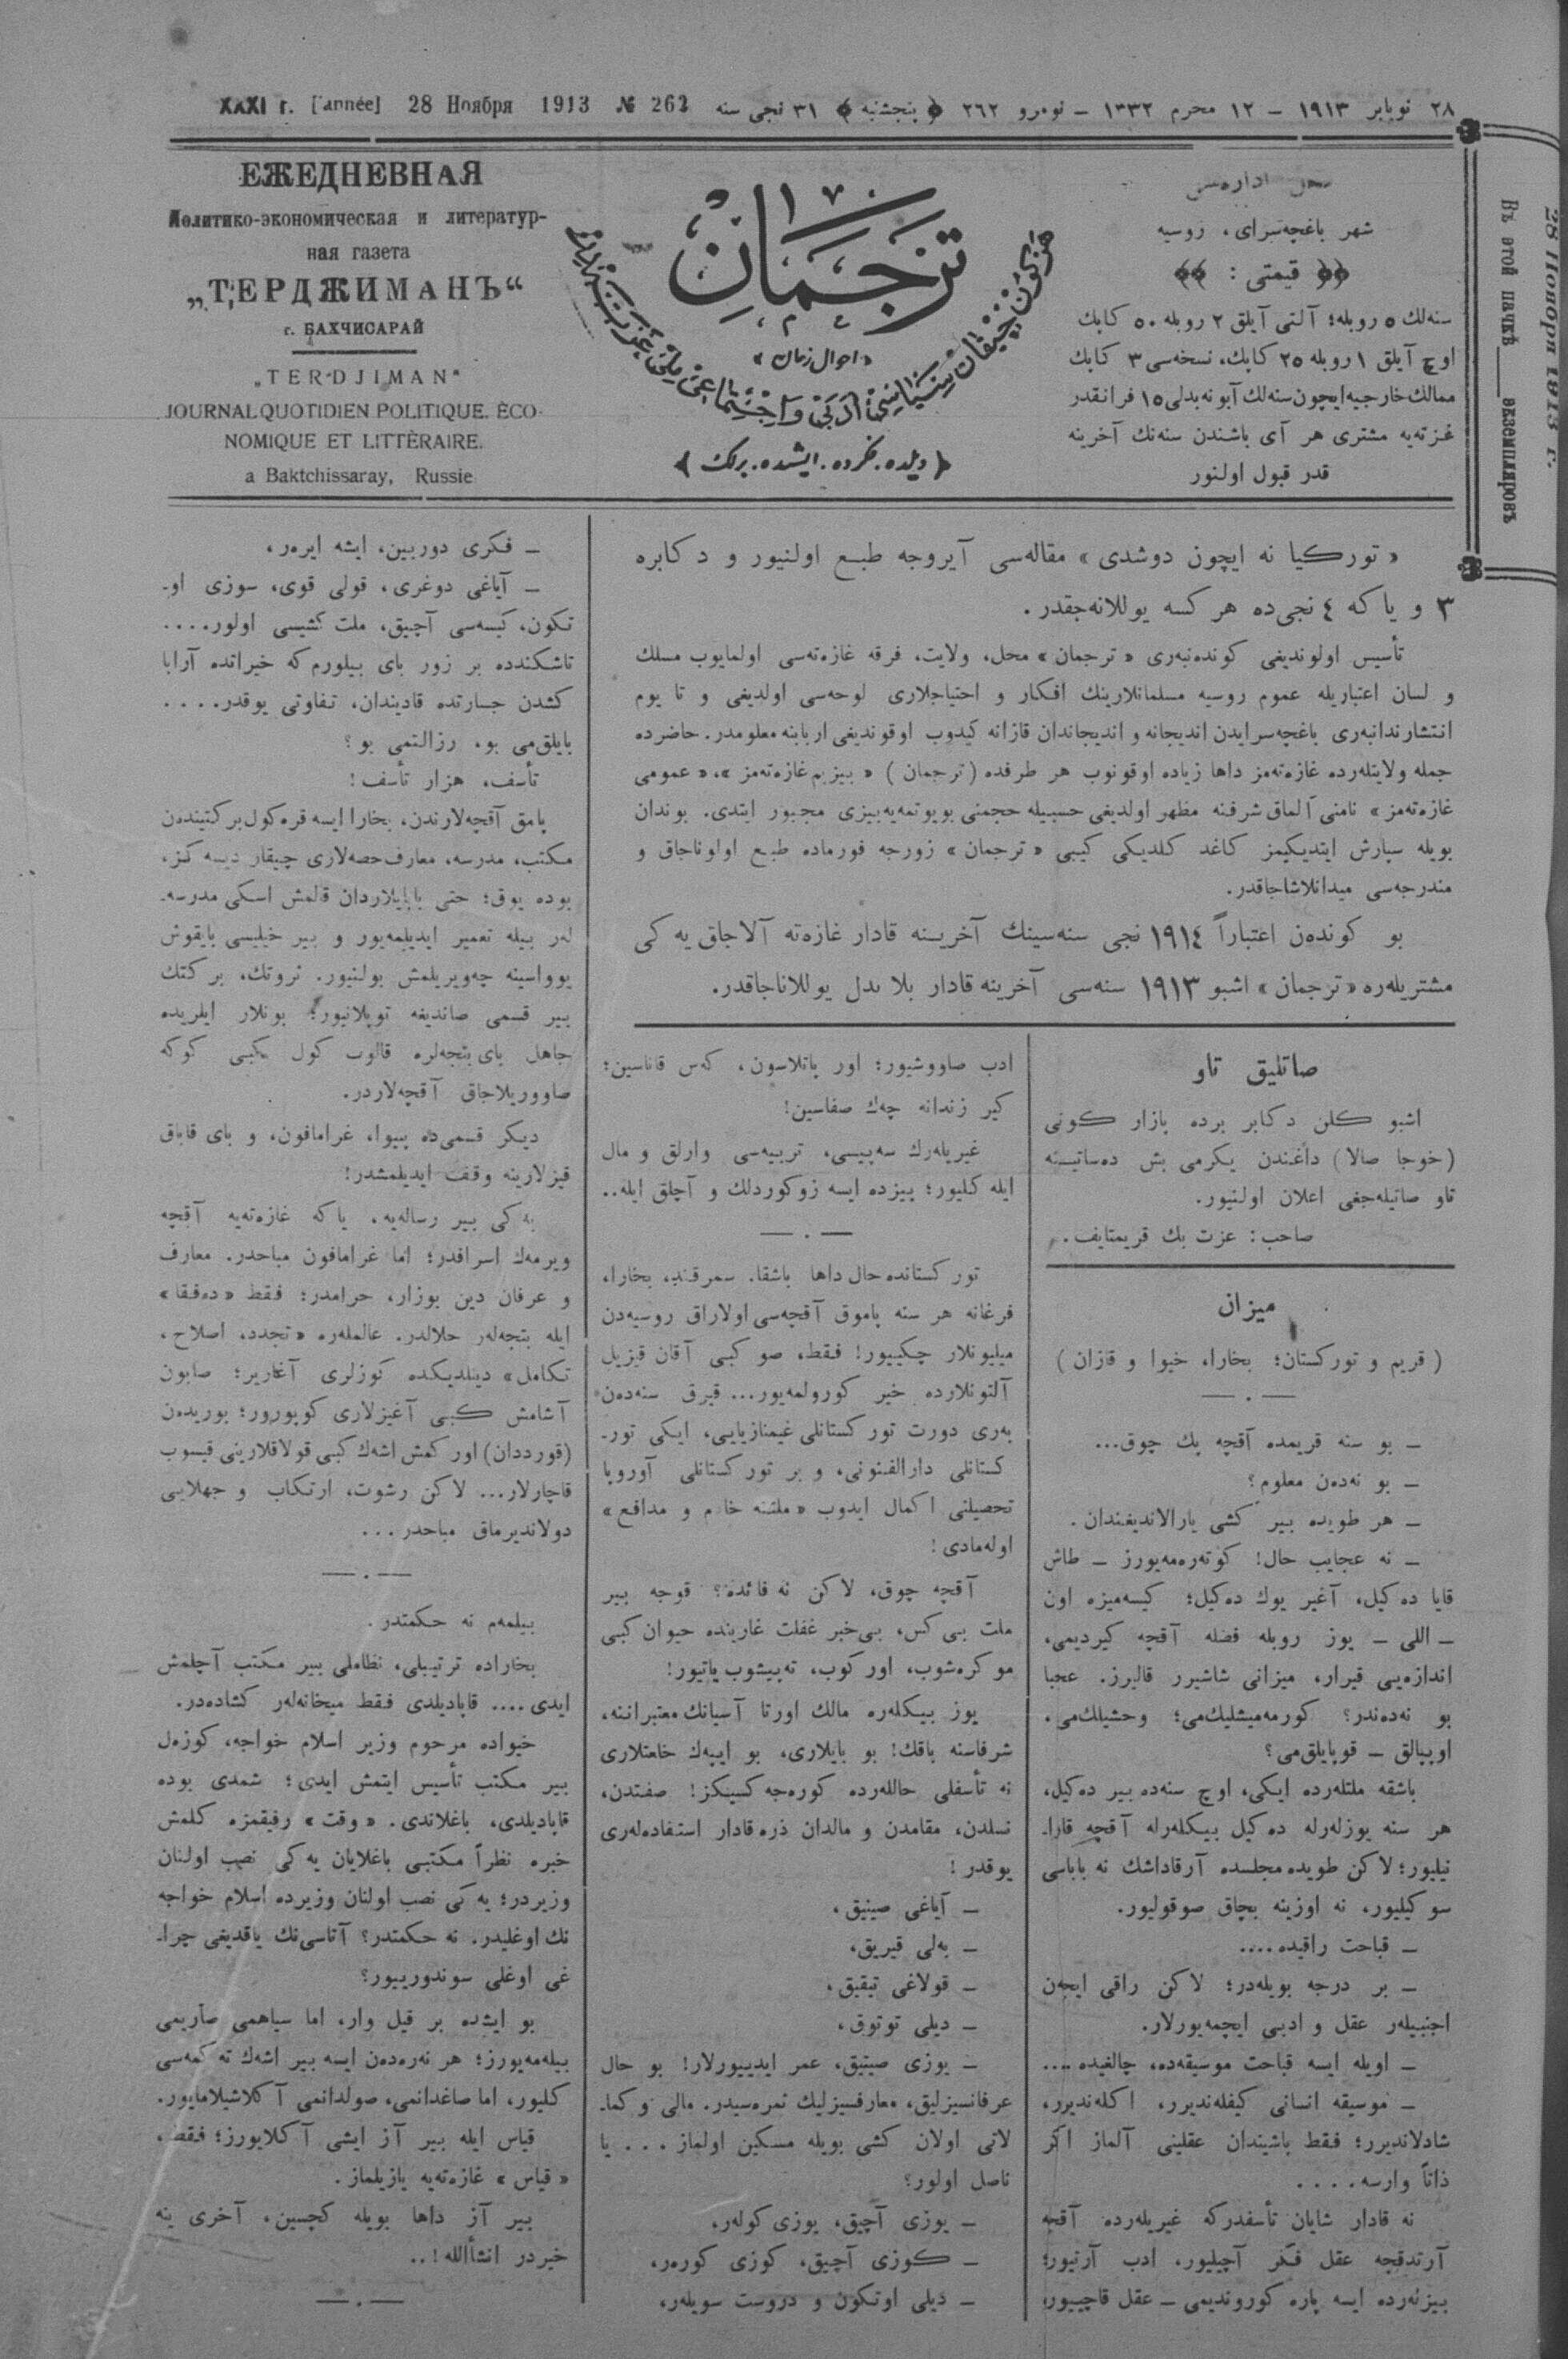 XXXI г. [année] 28 Ноября 1913 № 262
٢٨ نویابر ١٩١٣ – ١٢ محرم ١٣٣٢ – نومرو ٢٦٢ ﴿ پنجشنبه ﴾ ٣١ نجی سنه
ЕЖЕДНЕВНАЯ
Политико-экономическая и литератур-
ная газета
„ТЕРДЖИМАНЪ“
г. БАХЧИСАРАЙ
„TERDJIMAN“
JOURNAL QUOTIDIEN POLITIQUE, ÈCO-
NOMIQUE ET LITTÈRAIRE.
a Baktchissaray, Russie
ترجمان
«احوال زمان»
﴿ دیلده، فكرده، ایشده، برلك ﴾
محل اداره‌سی
شهر باغچه‌سرای، روسیه
﴾﴾ قیمتی : ﴿﴿
سنه‌لك ٥ روبله؛ آلتی آیلق ٢ روبله ٥٠ كاپك
اوچ آیلق ١ روبله ٢٥ كاپك، نسخه‌سی ٣ كاپك
ممالك خارجیه ایچون سنه‌لك آبونه بدلی ١٥ فرانقدر
غزته‌یه مشتری هر آی باشندن سنه‌نك آخرینه
قدر قبول اولنور
28 Ноября 1913 г.
Въ этой пачкѣ ____ экземпляровъ
« توركیا نه ایچون دوشدی » مقاله‌سی آیروجه طبع اولنیور و دكابره
٣ و یا كه ٤ نجی‌ده هر كسه یوللانه‌جقدر.
تأسیس اولوندیغی كونده‌نبه‌ری « ترجمان » محل، ولایت، فرقه غازه‌ته‌سی اولمایوب مسلك
و لسان اعتباریله عموم روسیه مسلمانلارینك افكار و احتیاجلاری لوحه‌سی اولدیغی و تا یوم
انتشارندانبه‌ری باغچه‌سرایدن اندیجانه و اندیجاندان قازانه كیدوب اوقوندیغی اربابنه معلومدر. حاضرده
جمله ولایتله‌رده غازه‌ته‌مز داها زیاده اوقونوب هر طرفده (ترجمان) « بیزیم غازه‌ته‌مز »، « عمومی
غازه‌ته‌مز » نامنی آلماق شرفنه مظهر اولدیغی حسبیله حجمنی بویوتمه‌یه بیزی مجبور ایتدی. بوندان
بویله سپارش ایتدیكیمز كاغد كلدیكی كیبی « ترجمان » زورجه فورماده طبع اولوناجاق و
مندرجه‌سی میدانلاشاجاقدر.
بو كونده‌ن اعتباراً ١٩١٤ نجی سنه‌سینك آخرینه قادار غازه‌ته آلاجاق یه كی
مشتریله‌ره « ترجمان » اشبو ١٩١٣ سنه‌سی آخرینه قادار بلا بدل یوللاناجاقدر.
صاتلیق تاو
اشبو كلن دكابر برده بازار كونی
(خوجا صالا) داغندن یكرمی بش ده‌ساتیـنه
تاو صاتیله‌جغی اعلان اولنیور.
صاحب : عزت بك قریمتایف.
میزان
( قریم و توركستان؛ بخارا، خیوا و قازان )
– بو سنه قریمده آقچه پك چوق...
– بو نه‌ده‌ن معلوم؟
– هر طویده بیر كشی یارالاندیغندان.
– نه عجایب حال! كوته‌ره‌مه‌یورز – طاش
قایا ده‌كیل، آغیر یوك ده‌كیل؛ كیسه‌میزه اون
– اللی – یوز روبله فضله آقچه كیردیمی،
اندازه‌یی قیرار، میزانی شاشیرر قالیرز. عجبا
بو نه‌ده‌ندر؟ كورمه‌میشلیك‌می؛ وحشیلك‌می،
اوپپالق – قوپایلق‌می؟
باشقه ملتله‌رده ایكی، اوچ سنه‌ده بیر ده‌كیل،
هر سنه یوزله‌رله ده‌كیل بیكله‌رله آقچه قازا-
نیلیور؛ لاكن طویده مجلسده آرقاداشك نه باباسی
سوكیلیور، نه اوزینه بچاق صوقولیور.
– قباحت راقیده....
– بر درجه بویله‌در؛ لاكن راقی ایچه‌ن
اجنبیله‌ر عقل و ادبی ایچمه‌یورلار.
– اویله ایسه قباحت موسیقه‌ده، چالغیده....
– موسیقه انسانی كیفله‌ندیرر، اكله‌ندیرر،
شادلاندیرر؛ فقط باشیندان عقلینی آلماز اكر
ذاتاً وارسه....
نه قادار شایان تأسفدركه غیریله‌رده آقچه
آرتدقچه عقل فكر آچیلیور، ادب آرتیور؛
بیزله‌رده ایسه پاره كوروندیمی – عقل قاچییور،
ادب صاووشیور؛ اور پاتلاسون، كه‌س قاناسین؛
كیر زندانه چه‌ك صفاسین!
غیریله‌رك سه‌پیسی، تربیه‌سی وارلق و مال
ایله كلیور؛ بیزده ایسه زوكوردلك و آچلق ایله..
توركستانده حال داها باشقا. سمرقند، بخارا،
فرغانه هر سنه پاموق آقچه‌سی اولاراق روسیه‌دن
میلیونلار چكییور! فقط، صو كبی آقان قیزیل
آلتونلارده خیر كورولمه‌یور... قیرق سنه‌ده‌ن
به‌ری دورت توركستانلی غیمنازیایی، ایكی تور-
كستانلی دارالفنونی، و بر توركستانلی آوروپا
تحصیلنی اكمال ایدوب « ملتنه خادم و مدافع »
اوله‌مادی!
آقچه چوق، لاكن نه فائده؟ قوجه بیر
ملت بی‌كس، بی‌خبر غفلت غارینده حیوان كبی
موكره‌شوب، اور كوب، ته‌پیشوب یاتیور!
یوز بیكله‌ره مالك اورتا آسیانك معتبراننه،
شرفاسنه باقك! بو بایلاری، بو ایپه‌ك خلعتلاری
نه تأسفلی حالله‌رده كوره‌جه‌كسیكز! صفتدن،
نسلدن، مقامدن و مالدان ذره قادار استفاده‌له‌ری
یوقدر!
– آیاغی صینیق،
– به‌لی قیریق،
– قولاغی تیقیق،
– دیلی توتوق،
– یوزی صیتیق، عمر ایدییورلار! بو حال
عرفانسیزلیق، معارفسیزلیك ثمره‌سیدر. مالی و كما-
لاتی اولان كشی بویله مسكین اولماز... یا
ناصل اولور؟
– یوزی آچیق، یوزی كوله‌ر،
– كوزی آچیق، كوزی كوره‌ر،
– دیلی اوتكون و دروست سویله‌ر،
– فكری دوربین، ایشه ایره‌ر،
– آیاغی دوغری، قولی قوی، سوزی او-
تكون، كیسه‌سی آچیق، ملت كشیسی اولور....
تاشكندده بر زور بای بیلورم كه خیراتده آرابا
كشدن جسارتده قادیندان، تفاوتی یوقدر....
بایلق‌می بو، رزالتمی بو؟
تأسف، هزار تأسف!
پامق آقچه‌لارندن، بخارا ایسه قره‌كول بركتینده‌ن
مكتب، مدرسه، معارف حصه‌لاری چیقار دیسه كز،
بوده یوق؛ حتی بابایلاردان قالمش اسكی مدرسه-
له‌ر بیله تعمیر ایدیلمه‌یور و بیر خیلیسی بایقوش
یوواسینه چه‌ویریلمش بولنیور. ثروتك، بركتك
بیر قسمی صاندیغه توپلانیور؛ بونلار ایلریده
جاهل بای بتچه‌لره قالوب كول كبی كوكه
صاووریلاجاق آقچه‌لاردر.
دیكر قسمی‌ده پیوا، غرامافون، و بای قاباق
قیزلارینه وقف ایدیلمشدر!
یه كی بیر رساله‌یه، یا كه غازه‌ته‌یه آقچه
ویرمه‌ك اسرافدر؛ اما غرامافون مباحدر. معارف
و عرفان دین بوزار، حرامدر؛ فقط « ده‌فقا »
ایله بتجه‌لر حلالدر. عالمله‌ره « تجدد، اصلاح،
تكامل » دینلدیكده كوزلری آغاریر؛ صابون
آشامش كبی آغیزلاری كوپورور؛ بوریده‌ن
(قورددان) اوركمش اشه‌ك كبی قولاقلارینی قیسوب
قاچارلار... لاكن رشوت، ارتكاب و جهلایی
دولاندیرماق مباحدر...
بیلمه‌م نه حكمتدر.
بخاراده ترتیبلی، نظاملی بیر مكتب آچلمش
ایدی.... قاپادیلدی فقط میخانه‌له‌ر كشاده‌در.
خیواده مرحوم وزیر اسلام خواجه، كوزه‌ل
بیر مكتب تأسیس ایتمش ایدی؛ شمدی بوده
قاپادیلدی، باغلاندی. « وقت » رفیقمزه كلمش
خبره نظراً مكتبی باغلایان یه كی نصب اولنان
وزیردر؛ یه كی نصب اولنان وزیرده اسلام خواجه
نك اوغلیدر. نه حكمتدر؟ آتاسی‌نك یاقدیغی چرا-
غی اوغلی سوندورییور؟
بو ایشده بر قیل وار، اما سیاهمی صاریمی
بیله‌مه‌یورز؛ هر نه‌ره‌ده‌ن ایسه بیر اشه‌ك ته كمه‌سی
كلیور، اما صاغدانمی، صولدانمی آكلاشیلامایور.
قیاس ایله بیر آز ایشی آكلایورز؛ فقط،
« قیاس » غازه‌ته‌یه یازیلماز.
بیر آز داها بویله كچسین، آخری ینه
خیردر انشأالله!..